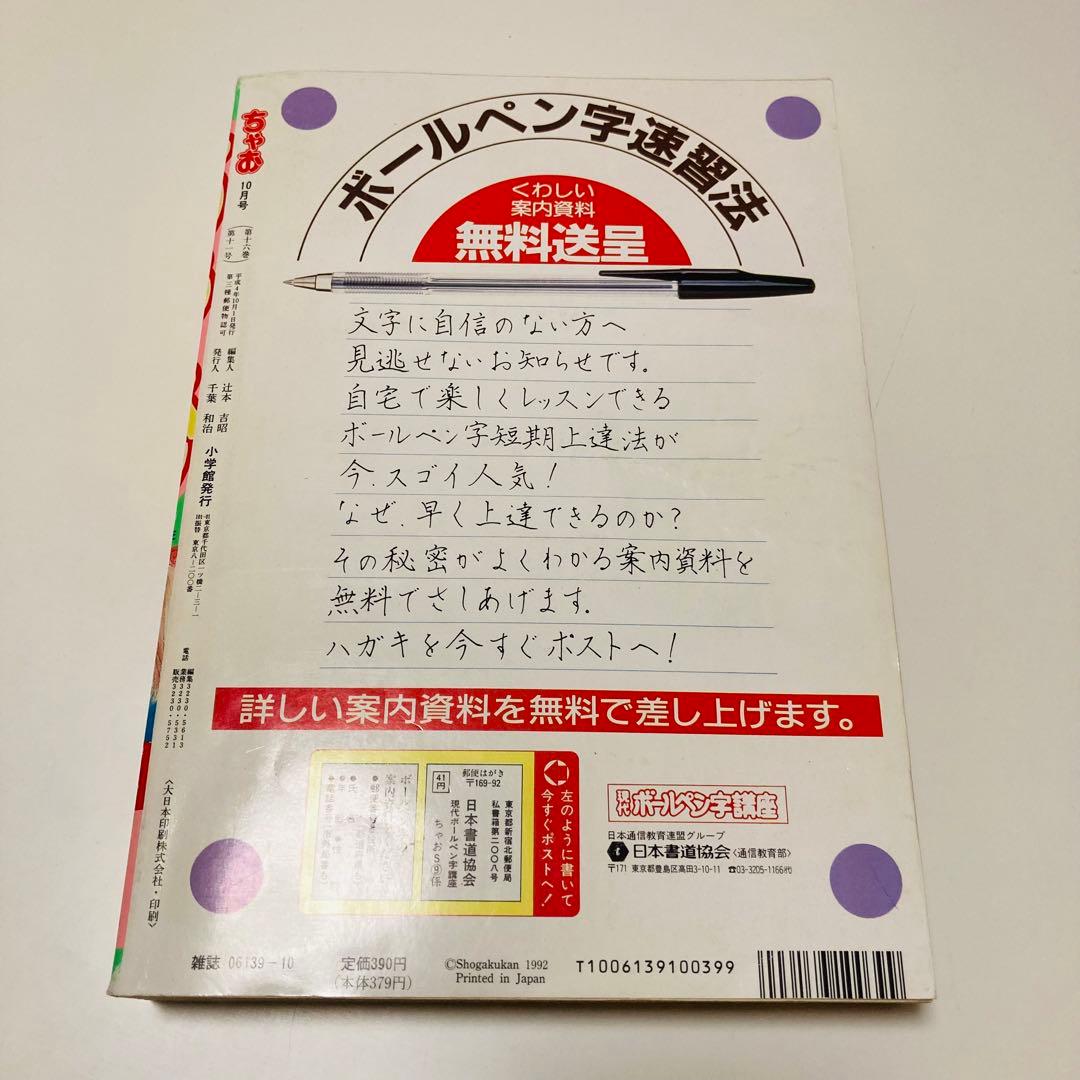 ちゃお
10月号
(第十六巻 第十一号)
平成4年10月1日発行
第三種郵便物認可
編集人 辻本 吉昭
発行人 千葉 和治
小学館発行
東京都千代田区一ツ橋二-三-一
振替 東京八-二〇〇番
電話
編集3230・5613
業務3230・5331
販売3230・5752
〈大日本印刷株式会社・印刷〉
ボールペン字速習法
くわしい
案内資料
無料送呈
文字に自信のない方へ
見逃せないお知らせです。
自宅で楽しくレッスンできる
ボールペン字短期上達法が
今、スゴイ人気!
なぜ、早く上達できるのか?
その秘密がよくわかる案内資料を
無料でさしあげます。
ハガキを今すぐポストへ!
詳しい案内資料を無料で差し上げます。
左のように書いて
今すぐポストへ!
郵便はがき
〒169-92
41円
東京都新宿北郵便局
私書箱第二〇〇八号
日本書道協会
現代ボールペン字講座
ちゃおS⑨係
ボール
案内資
●郵便番
●氏
●年
●電話番号
現代ボールペン字講座
日本通信教育連盟グループ
日本書道協会〈通信教育部〉
〒171 東京都豊島区高田3-10-11 ☎03-3205-1166㈹
雑誌 06139-10
定価390円
(本体379円)
©Shogakukan 1992
Printed in Japan
T1006139100399